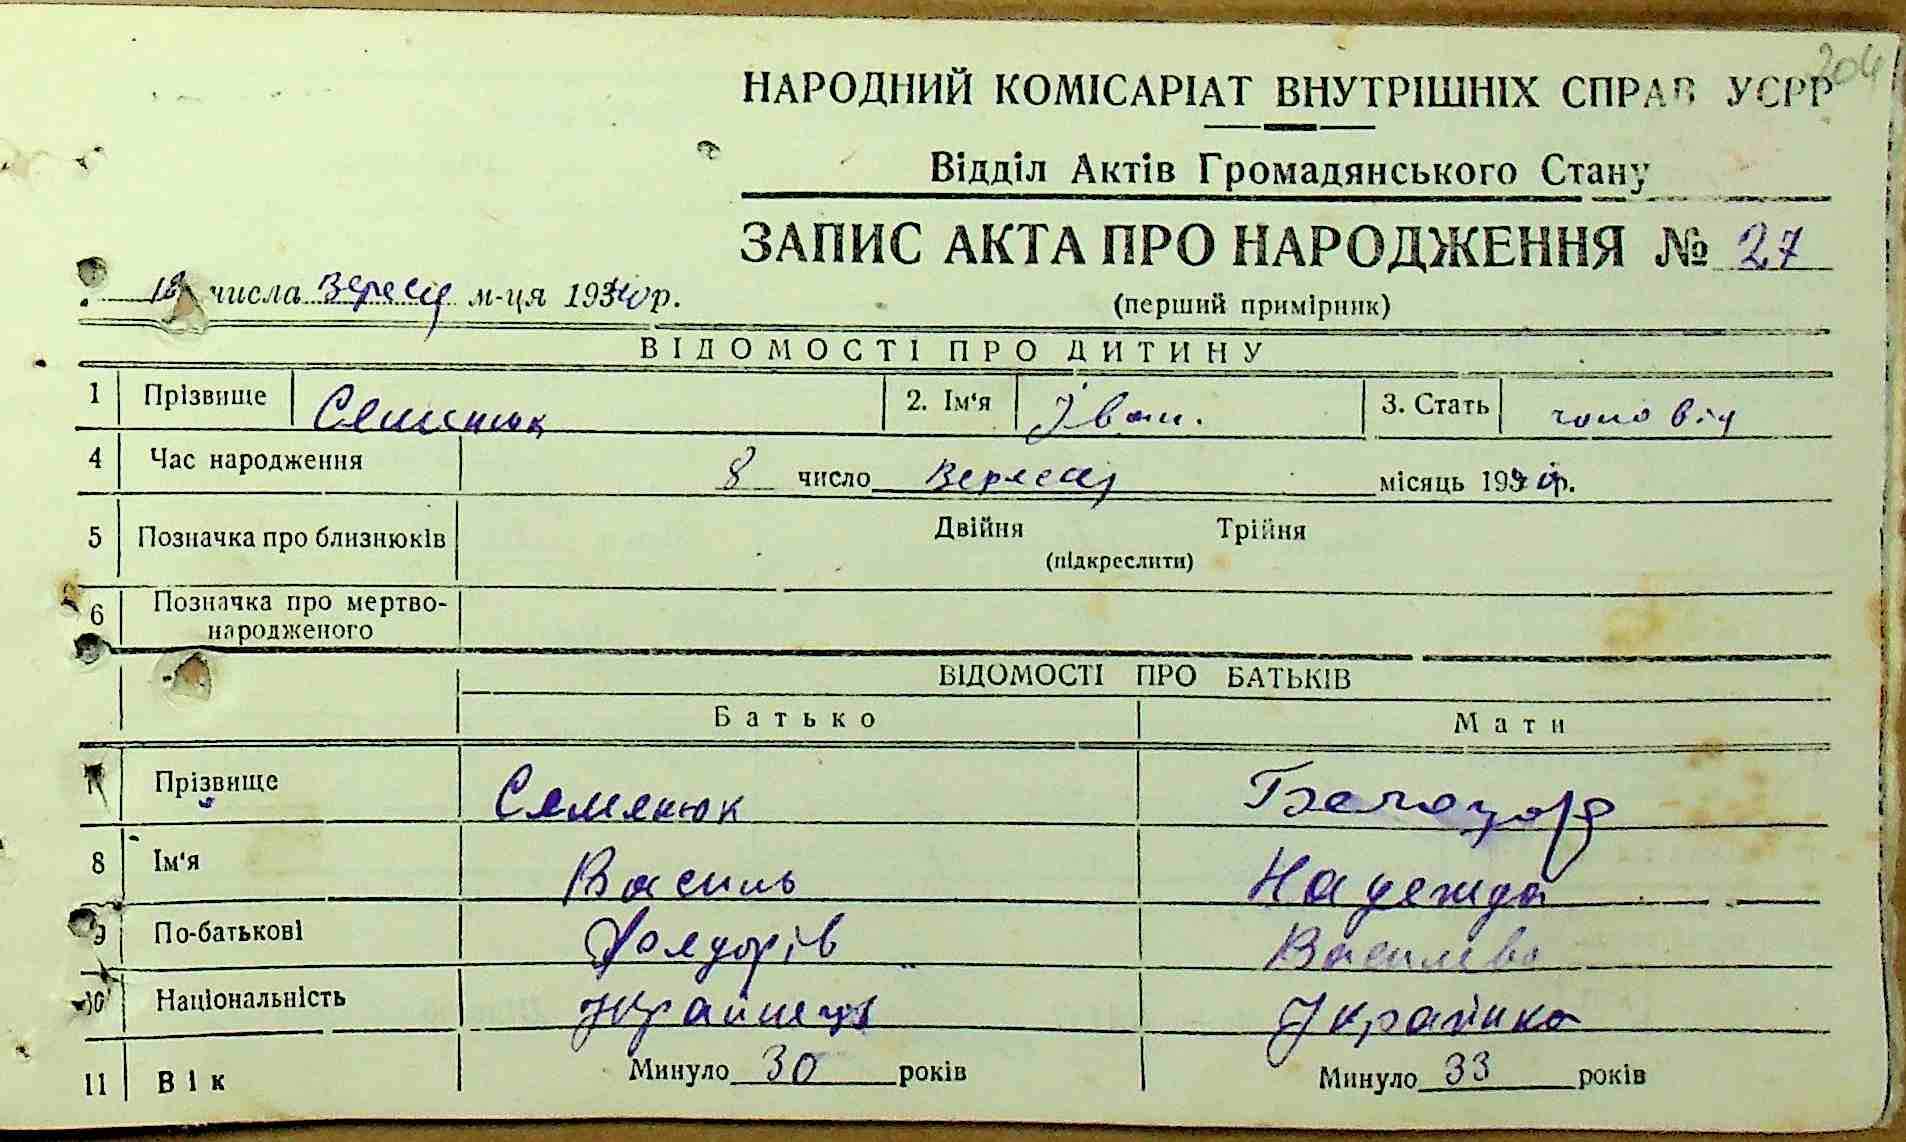 204
НАРОДНИЙ КОМІСАРІАТ ВНУТРІШНІХ СПРАВ УСРР
Відділ Актів Громадянського Стану
ЗАПИС АКТА ПРО НАРОДЖЕННЯ № 27
числа м-ця 1940 р.
(перший примірник)
ВІДОМОСТІ ПРО ДИТИНУ
1 Прізвище Семенюк 2. Ім'я Іван. 3. Стать
4 Час народження 8 число місяць 1940 р.
5 Позначка про близнюків Двійня Трійня
(підкреслити)
6 Позначка про мертво-
народженого
ВІДОМОСТІ ПРО БАТЬКІВ
Батько Мати
7 Прізвище Семенюк
8 Ім'я Василь Надежда
9 По-батькові
10 Національність Українець Українка
11 Вік Минуло 30 років Минуло 33 років